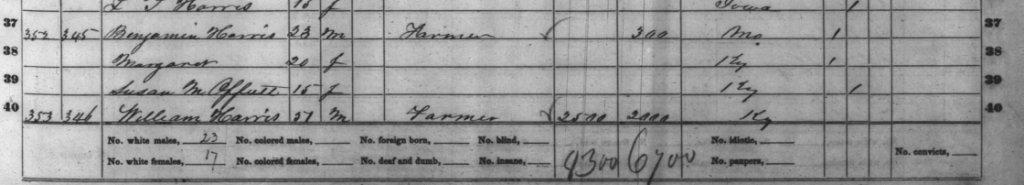 Harris 15 f Iowa 1
37 352 345 Benjamin Harris 23 m Farmer 300 Mo 1 37
38 Margaret 20 f Ky 1 38
39 Susan M Offutt 15 f Ky 1 39
40 353 346 William Harris 57 m Farmer 2500 2000 Ky 40
No. white males, 23 No. colored males, No. foreign born, No. blind, 9300 6700 No. idiotic, No. convicts,
No. white females, 17 No. colored females, No. deaf and dumb, No. insane, No. paupers,